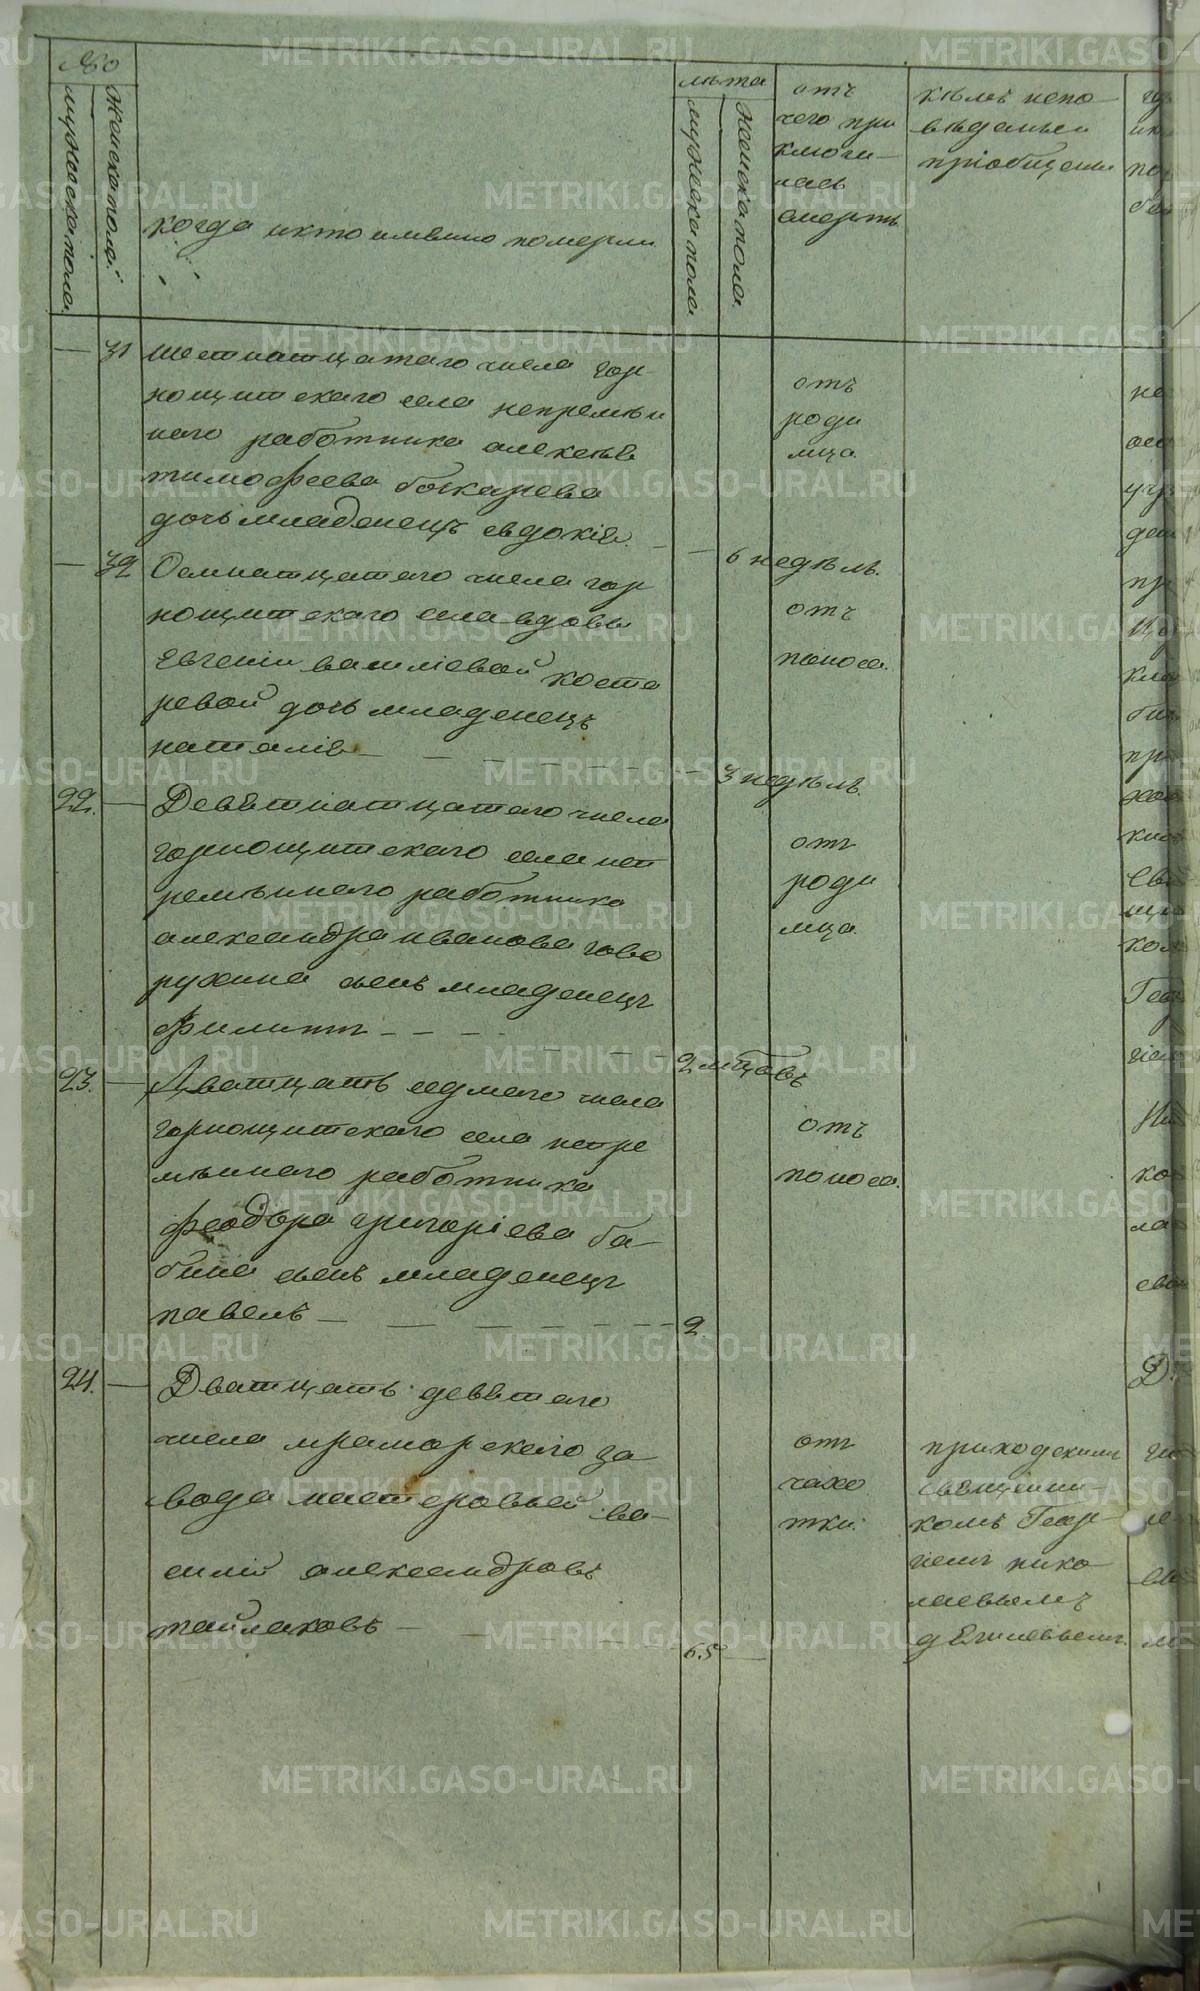 №
мужеска пола
женска пола
когда и кто имянно померли
лѣта
мужеска пола
женска пола
отъ
чего при
ключи-
лась
смерть
кѣмъ испо-
вѣданы и
пріобщены
— 31 шестнатцатаго числа гор
нощитскаго села непремѣн
наго работника алексѣя
тимофеева бочкарева
дочь младенецъ евдокія. —
— 6 недѣль.
отъ
роди
мца.
— 32 Осмнатцатаго числа гор
нощитскаго села вдовы
Евгеніи василіевой коста
ревой дочь младенецъ
наталія — — — — —
— 3 недѣль.
отъ
поноса.
22. — Девятнатцатаго числа
горнощитскаго села неп
ремѣннаго работника
александра иванова гово
рухина сынъ младенецъ
филиппъ — — — — —
2 мцовъ
отъ
роди
мца.
23. — Дватцать седмаго числа
горнощитскаго села непре
мѣннаго работника
феодора григоріева ба-
бина сынъ младенецъ
павелъ — — — — — —
2.
отъ
поноса.
24. — Дватцать девятаго
числа мраморскаго за-
вода мастеровый ва-
силій александровъ
тайлаковъ — — — —
65 —
отъ
чахо
тки.
приходскимъ
священни-
комъ Геор-
гіемъ нико
лаевымъ
METRIKI.GASO-URAL.RU